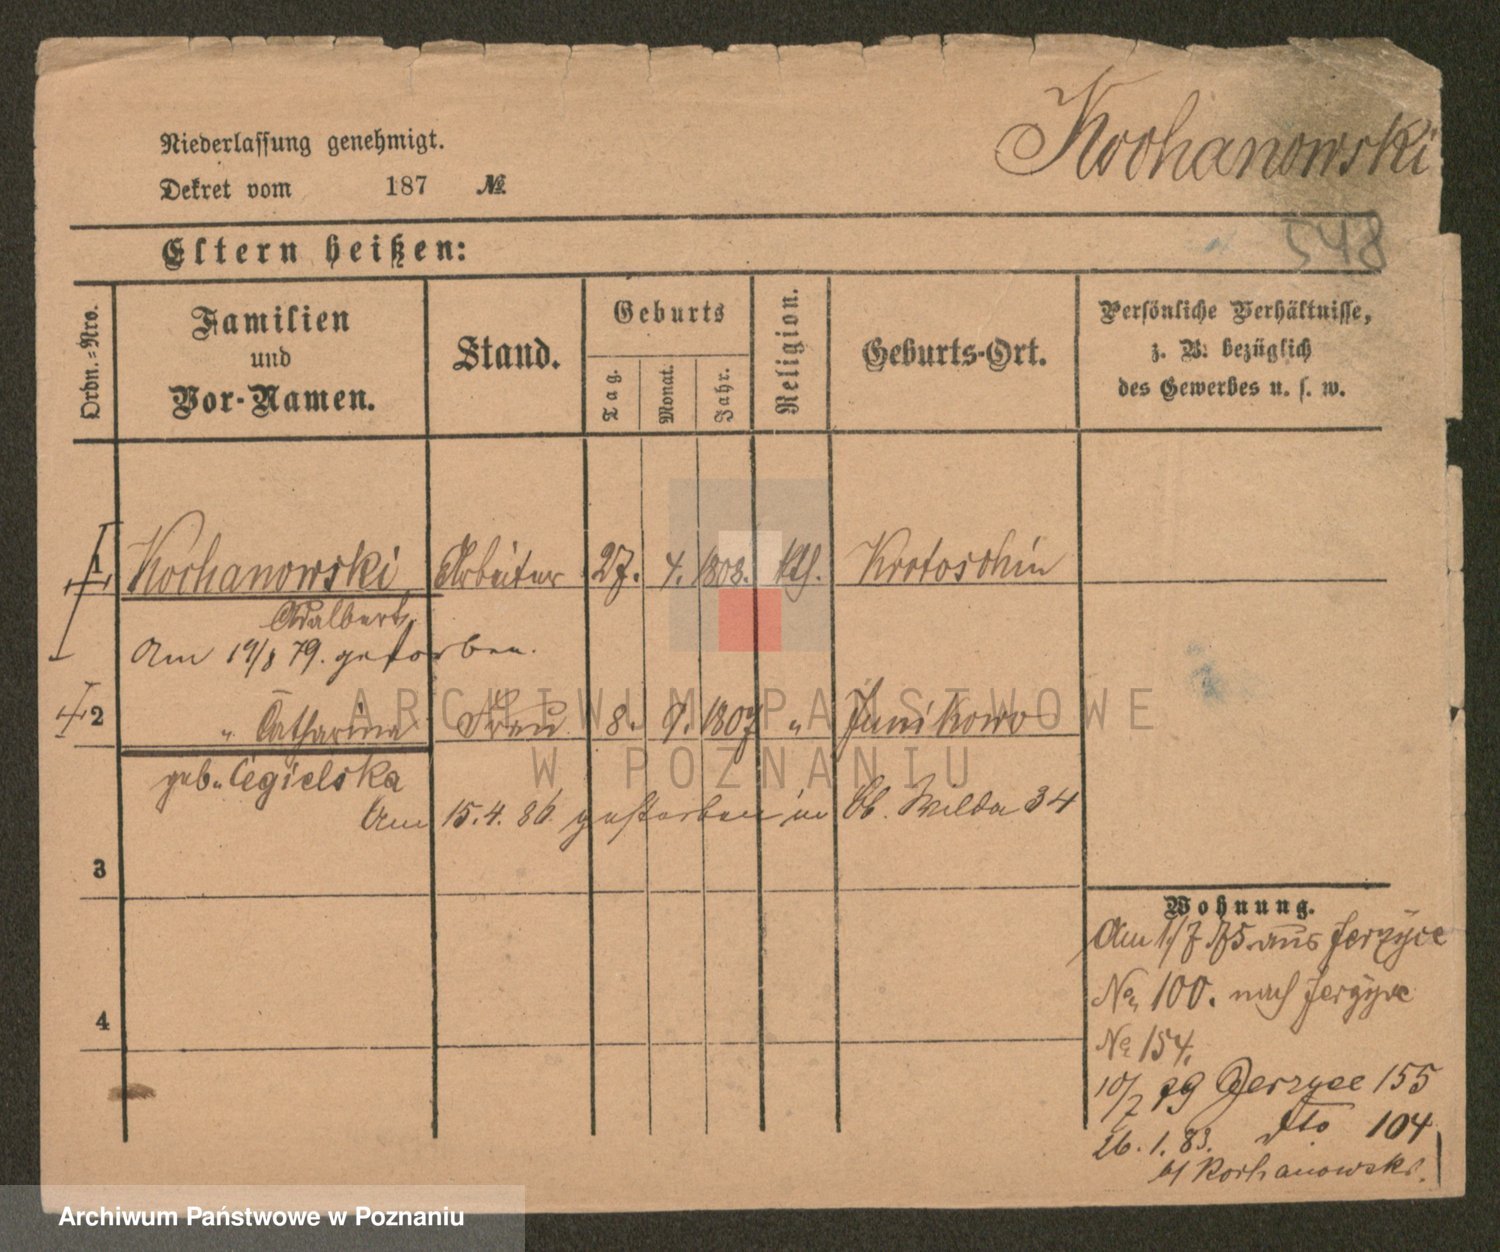 Kochanowski
Niederlassung genehmigt.
Dekret vom 187 №
548
Eltern heißen:
Ordn.=Nro.
Familien
und
Vor-Namen.
Stand.
Geburts
Tag.
Monat.
Jahr.
Religion.
Geburts-Ort.
Persönliche Verhältnisse,
z. B. bezüglich
des Gewerbes u. s. w.
1 Kochanowski Arbeiter 27. 4. 1803. kth. Krotoschin
Adalbert
Am 19/8 79. gestorben.
2 " Catharina Frau 8. 9. 1807 " Junikowo
geb. Cegielska
Am 15.4.86 gestorben in Ob. Wilda 34
3
4
Wohnung.
Am 1/7 75 aus Jerzyce
No 100. nach Jerzyce
No 154.
10/7 79 Jerzyce 155
26.1.83. dto 104
b/ Kochanowski.
ARCHIWUM PAŃSTWOWE
W POZNANIU
Archiwum Państwowe w Poznaniu